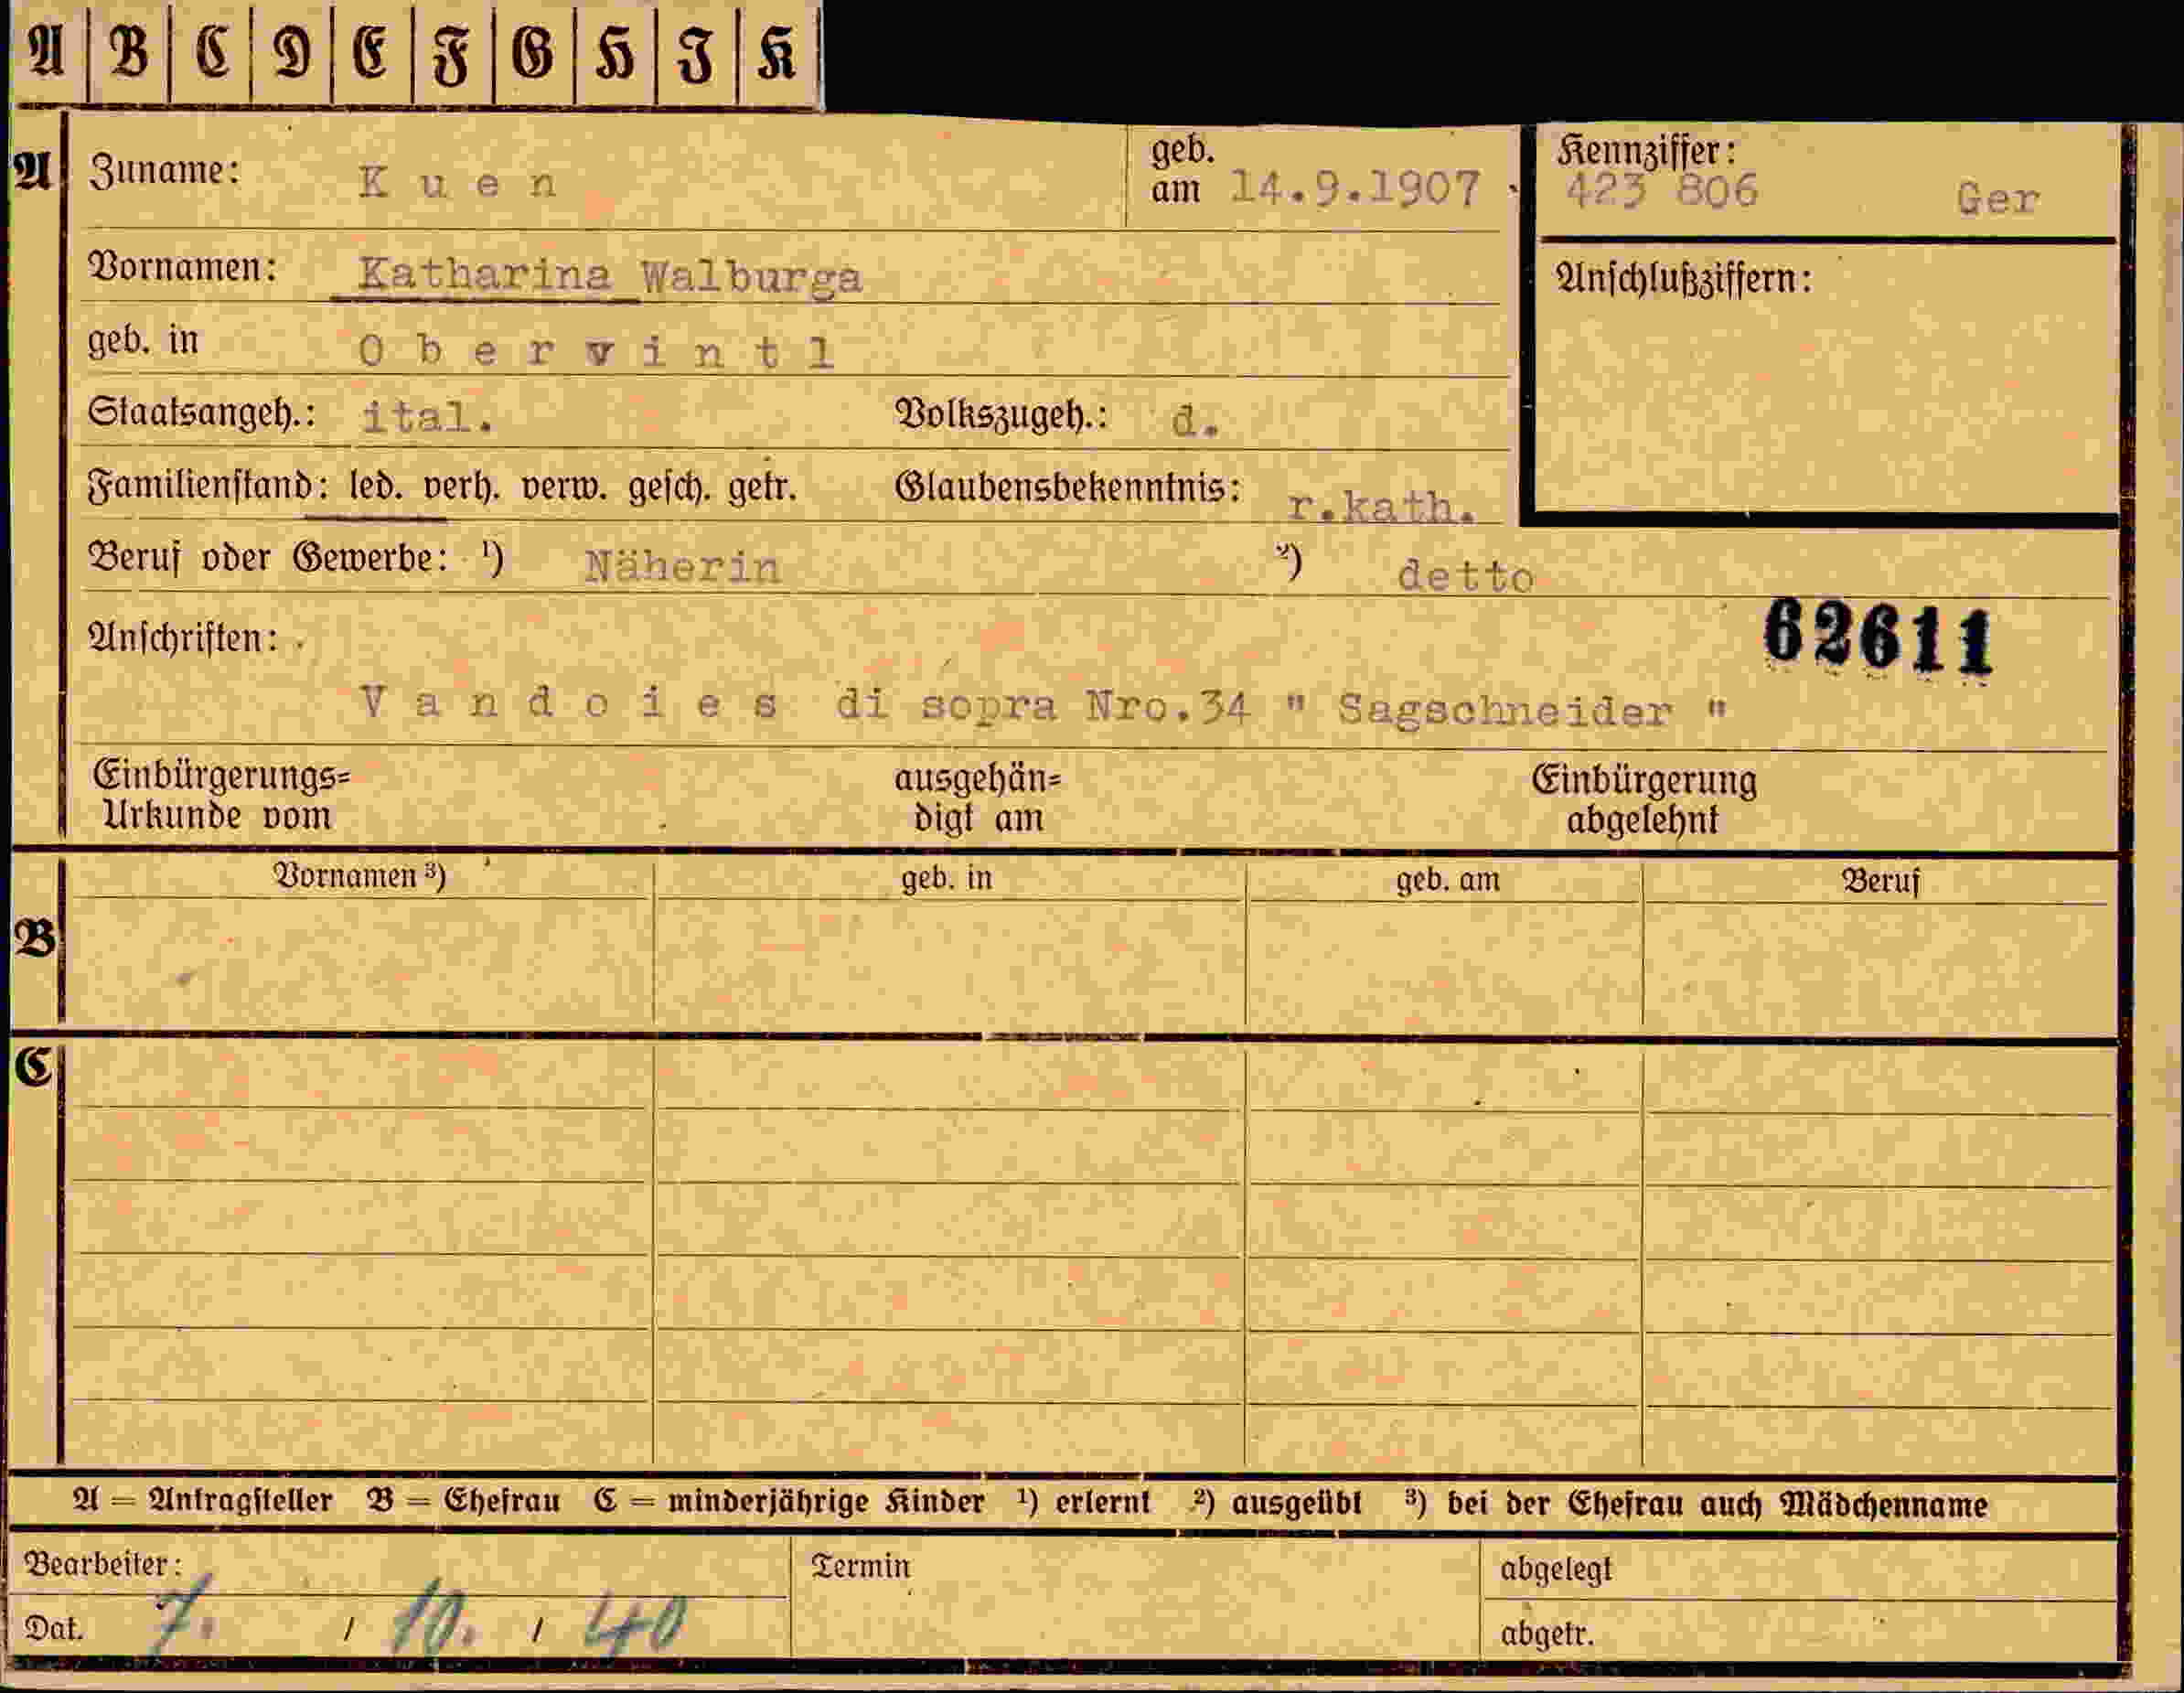 A B C D E F G H J K
A Zuname: Kuen geb. am 14.9.1907 Kennziffer: 423 806 Ger
Vornamen: Katharina Walburga Anschlußziffern:
geb. in Obervintl
Staatsangeh.: ital. Volkszugeh.: d.
Familienstand: led. verh. verw. gesch. getr. Glaubensbekenntnis: r.kath.
Beruf oder Gewerbe: ¹) Näherin ²) detto
Anschriften: 62611
Vandoies di sopra Nro.34 " Sagschneider "
Einbürgerungs= ausgehän= Einbürgerung
Urkunde vom digt am abgelehnt
Vornamen ³) geb. in geb. am Beruf
B
C
A = Antragsteller B = Ehefrau C = minderjährige Kinder ¹) erlernt ²) ausgeübt ³) bei der Ehefrau auch Mädchenname
Bearbeiter: Termin abgelegt
Dat. 7. / 10. / 40 abgetr.